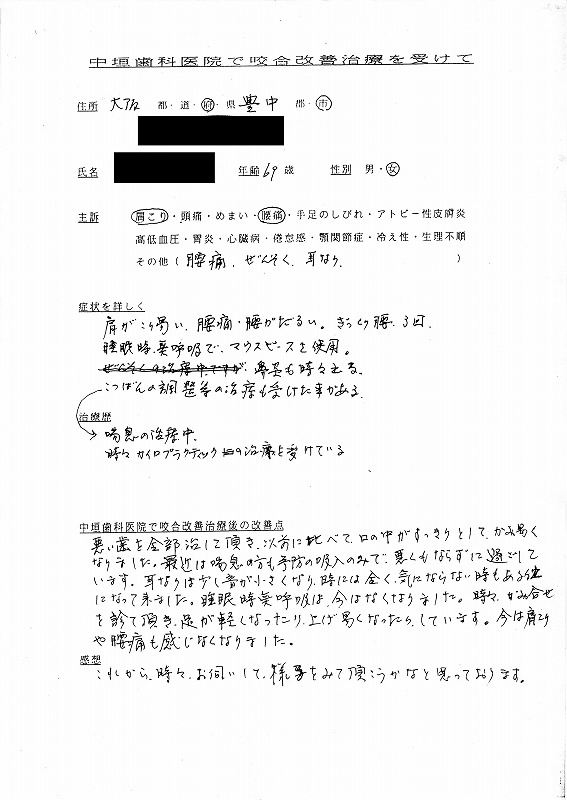 中垣歯科医院で咬合改善治療を受けて
住所 大阪 都・道・府・県 豊中 郡・市
氏名 年齢 69 歳 性別 男・女
主訴 肩こり・頭痛・めまい・腰痛・手足のしびれ・アトピー性皮膚炎
高低血圧・胃炎・心臓病・倦怠感・顎関節症・冷え性・生理不順
その他( 腰痛、ぜんそく、耳なり、 )
症状を詳しく
肩がこり易い、腰痛・腰がだるい。ぎっくり腰、3回、
睡眠時無呼吸で、マウスピースを使用。
ぜんそくの治療中ですが、鼻炎も時々出る。
こつばんの調整等の治療も受けた事がある。
治療歴
喘息の治療中、
時々カイロプラクティックの治療を受けている
中垣歯科医院で咬合改善治療後の改善点
悪い歯を全部治して頂き、以前に比べて、口の中がすっきりとして、かみ易く
なりました。最近は喘息の方も予防の吸入のみで、悪くもならずに過ごして
います。耳なりは少し音が小さくなり、時には全く、気にならない時もある位
になって来ました。睡眠時無呼吸は、今はなくなりました。時々、かみ合せ
を診て頂き、足が軽くなったり、上げ易くなったり、しています。今は肩こり
や腰痛も感じなくなりました。
感想
これから、時々、お伺いして、様子をみて頂こうかなと思っております。